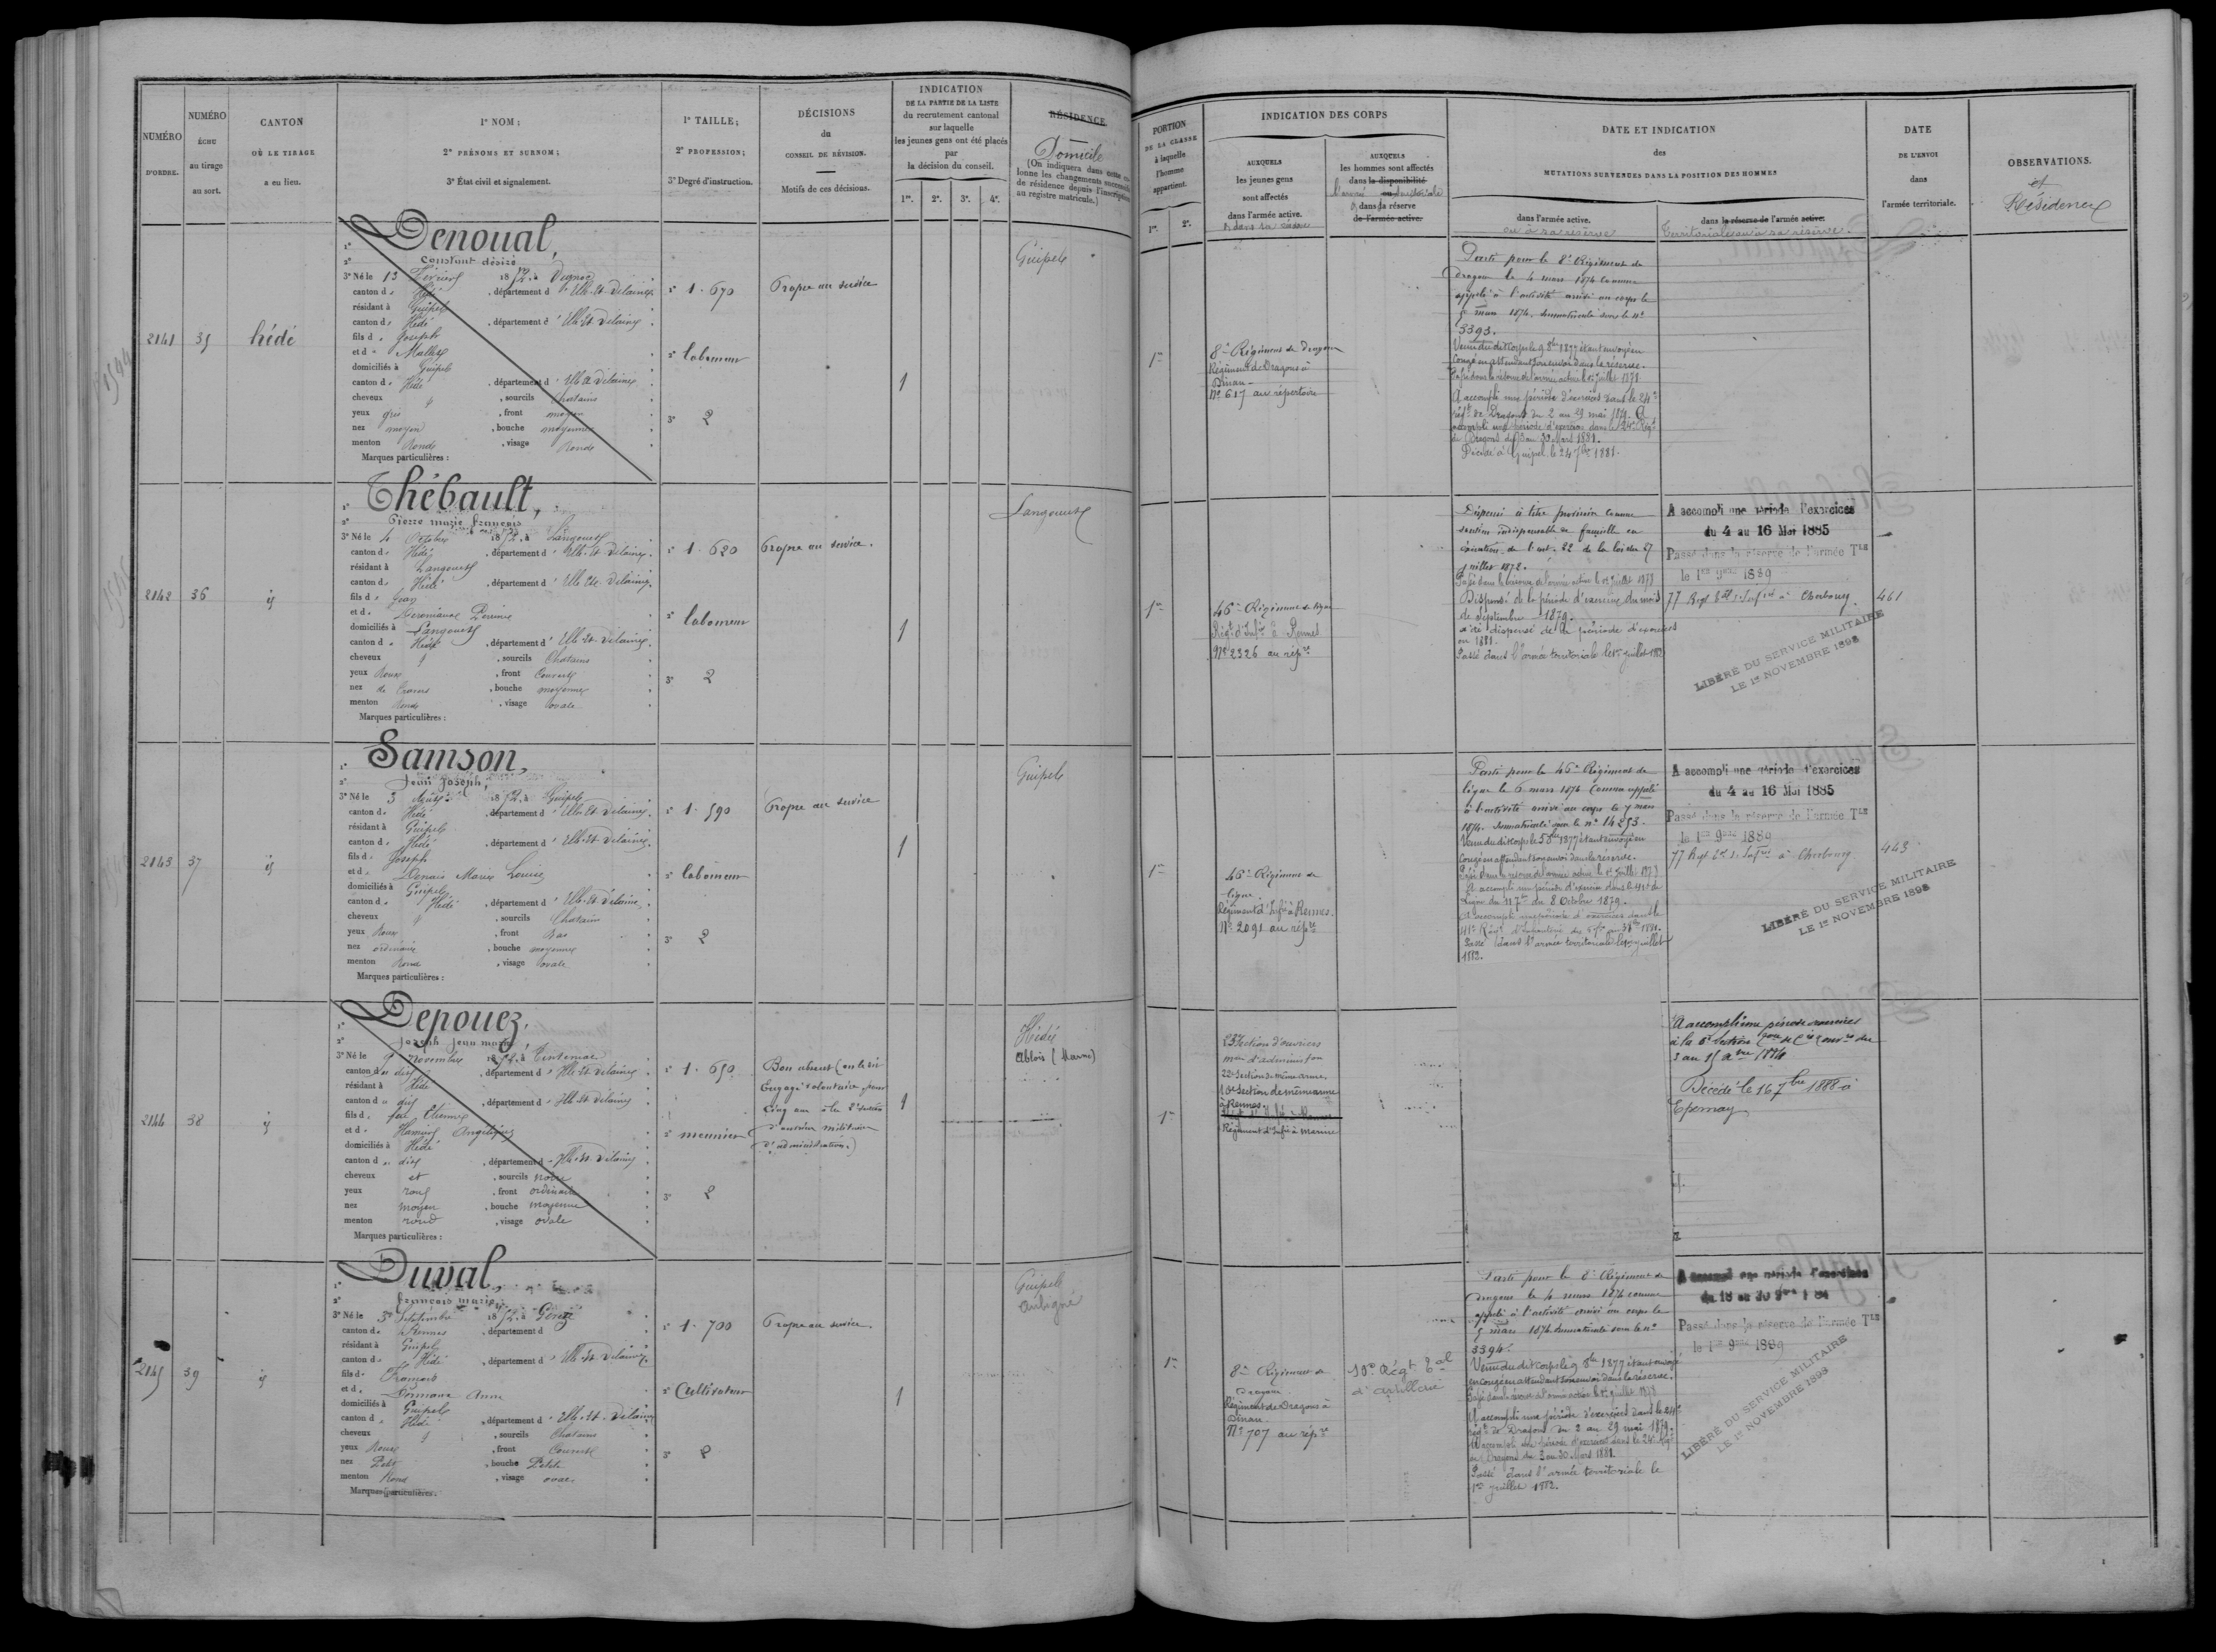 NUMÉRO
D'ORDRE.
NUMÉRO
ÉCHU
au tirage
au sort.
CANTON
OÙ LE TIRAGE
a eu lieu.
1° NOM;
2° PRÉNOMS ET SURNOM;
3° État civil et signalement.
1° TAILLE;
2° PROFESSION;
3° Degré d'instruction.
DÉCISIONS
du
CONSEIL DE RÉVISION.
Motifs de ces décisions.
INDICATION
DE LA PARTIE DE LA LISTE
du recrutement cantonal
sur laquelle
les jeunes gens ont été placés
par
la décision du conseil.
1re. 2e. 3e. 4e.
RÉSIDENCE
Domicile
(On indiquera dans cette co-
lonne les changements successifs
de résidence depuis l'inscription
au registre matricule.)
2141
35
hédé
Denoual,
Constant désiré
3° Né le 13 février 1852, à
canton de Hédé, département d'Ille-et-Vilaine
résidant à Guipel
canton de Hédé, département d'Ille-et-Vilaine
fils de Joseph
et de
domiciliés à Guipel
canton de Hédé, département d'Ille et Vilaine
cheveux et, sourcils chatains
yeux gris, front moyen
nez moyen, bouche moyenne
menton Rond, visage Rond
Marques particulières :
1° 1.670
2° laboureur
3° 2
Propre au service
1
Guipel
2142
36
id
Thébault,
Pierre marie françois
3° Né le 4 Octobre 1852, à Langouet
canton de Hédé, département d'Ille-et-Vilaine
résidant à Langouet
canton de Hédé, département d'Ille-et-Vilaine
fils de Jean
et de
domiciliés à Langouet
canton de Hédé, département d'Ille-et-Vilaine
cheveux et, sourcils Chatains
yeux Roux, front Couvert
nez, bouche moyenne
menton Rond, visage ovale
Marques particulières :
1° 1.620
2° laboureur
3° 2
Propre au service.
1
Langouet
2143
37
id
Samson,
Jean Joseph,
3° Né le 3 1852, à Guipel
canton de Hédé, département d'Ille-et-Vilaine
résidant à Guipel
canton de Hédé, département d'Ille-et-Vilaine
fils de Joseph
et de Denais Marie Louise
domiciliés à Guipel
canton de Hédé, département d'Ille-et-Vilaine
cheveux et, sourcils Chatains
yeux Roux, front Bas
nez ordinaire, bouche moyenne
menton Rond, visage ovale
Marques particulières :
1° 1.590
2° laboureur
3° 2
Propre au service
1
Guipel
2144
38
id
Depouez,
Joseph Jean marie
3° Né le novembre 1852, à Tinténiac
canton du dit, département d'Ille-et-Vilaine
résidant à Hédé
canton du dit, département d'Ille-et-Vilaine
fils de feu Etienne
et de Angélique
domiciliés à Hédé
canton du dit, département d'Ille-et-Vilaine
cheveux et, sourcils noirs
yeux roux, front ordinaire
nez moyen, bouche moyenne
menton rond, visage ovale
Marques particulières :
1° 1.650
2° meunier
3° 2
Bon absent
Engagé volontaire pour
cinq ans à la 2e section
d'ouvriers militaires
d'administration.)
1
Hédé
Ablois (Marne)
2145
39
id
Duval,
françois marie,
3° Né le Septembre 1852, à Gévezé
canton de Rennes, département d
résidant à Guipel
canton de Hédé, département d'Ille-et-Vilaine
fils de François
et de Anne
domiciliés à Guipel
canton de Hédé, département d'Ille-et-Vilaine
cheveux et, sourcils Chatains
yeux Roux, front Couvert
nez Petit, bouche Petite
menton Rond, visage ovale
Marques particulières :
1° 1.700
2° Cultivateur
3° 2
Propre au service.
1
Guipel
Aubigné
PORTION
DE LA CLASSE
à laquelle
l'homme
appartient.
1re. 2e.
INDICATION DES CORPS
AUXQUELS
les jeunes gens
sont affectés
dans l'armée active.
et dans sa réserve
AUXQUELS
les hommes sont affectés
dans la disponibilité
l'armée ou territoriale
et dans sa réserve
de l'armée active.
DATE ET INDICATION
des
MUTATIONS SURVENUES DANS LA POSITION DES HOMMES
dans l'armée active.
ou à sa réserve
dans la réserve de l'armée active.
Territoriale ou à sa réserve.
DATE
DE L'ENVOI
dans
l'armée territoriale.
OBSERVATIONS.
et
Résidences
1re
8e Régiment de Dragons
Régiment de Dragons à
Dinan-
N° 617 au répertoire
Parti pour le 8e Régiment de
dragons le 4 mars 1874 comme
appelé à l'activité arrivé au corps le
5 mars 1874. Immatriculé sous le n°
3393.
Venu dudit corps le 9 8bre 1877 étant envoyé en
congé en attendant son envoi dans la réserve.
Passé dans la réserve de l'armée active le 1er juillet 1878
A accompli une période d'exercices dans le 24e
régt de Dragons du 2 au 29 mai 1879. A
accompli une période d'exercices dans le 24e Régt
de Dragons du 3 au 30 Mars 1881.
Décédé à Guipel le 24 7bre 1881.
1re
46e Régiment de ligne
Régt d'Infie à Rennes
N° 2326 au répre
Dispensé à titre provisoire comme
soutien indispensable de famille en
exécution de l'art. 22 de la loi du 27
juillet 1872.
Passé dans la réserve de l'armée active le 1er juillet 1878
Dispensé de la période d'exercices du mois
de Septembre 1879.
a été dispensé de la période d'exercices
en 1881.
Passé dans l'armée territoriale le 1er juillet 1882
A accompli une période d'exercices
du 4 au 16 Mai 1885
Passé dans la réserve de l'armée Tle
le 1er 9bre 1889
77 Regt tal d'Infie à Cherbourg
461
LIBÉRÉ DU SERVICE MILITAIRE
LE 1er NOVEMBRE 1898
1re
46e Régiment de
ligne
Régiment d'Infie à Rennes.
N° 2091 au répre
Parti pour le 46e Régiment de
ligne le 6 mars 1874 comme appelé
à l'activité arrivé au corps le 7 mars
1874. Immatriculé sous le n° 14253.
Venu dudit corps le 1877 étant envoyé en
congé en attendant son envoi dans la réserve.
Passé dans la réserve de l'armée active le 1er juillet 1878
A accompli une période d'exercices dans le 41e de
Ligne du 11 7bre au 8 Octobre 1879.
A accompli une période d'exercices dans le
41e Régt d'infanterie du 1881.
Passé dans l'armée territoriale le 1er juillet
1882.
A accompli une période d'exercices
du 4 au 16 Mai 1885
Passé dans la réserve de l'armée Tle
le 1er 9bre 1889
77 Regt tal d'Infie à Cherbourg
443
LIBÉRÉ DU SERVICE MILITAIRE
LE 1er NOVEMBRE 1898
1re
Section d'ouvriers
d'administon
22e Section de même arme
10e Section de même arme
à Rennes.
Régiment d'Infie à
A accompli une période d'exercices
à la Section
1884
Décédé le 16 7bre 1888 à
Epernay
1re
8e Régiment de
Dragons
Régiment de Dragons à
Dinan.
N° 707 au répre
10e Régt tal
d'artillerie
Parti pour le 8e Régiment de
dragons le 4 mars 1874 comme
appelé à l'activité arrivé au corps le
5 mars 1874 Immatriculé sous le n°
3394.
Venu dudit corps le 9 8bre 1877 étant envoyé
en congé en attendant son envoi dans la réserve.
Passé dans la réserve de l'armée active le 1er juillet 1878
A accompli une période d'exercices dans le 24e
régt de Dragons du 2 au 29 mai 1879.
A accompli une période d'exercices dans le 24e Régt
de Dragons du 3 au 30 Mars 1881.
Passé dans l'armée territoriale le
1er juillet 1882.
A accompli une période d'exercices
Passé dans la réserve de l'armée Tle
le 1er 9bre 1889
LIBÉRÉ DU SERVICE MILITAIRE
LE 1er NOVEMBRE 1898